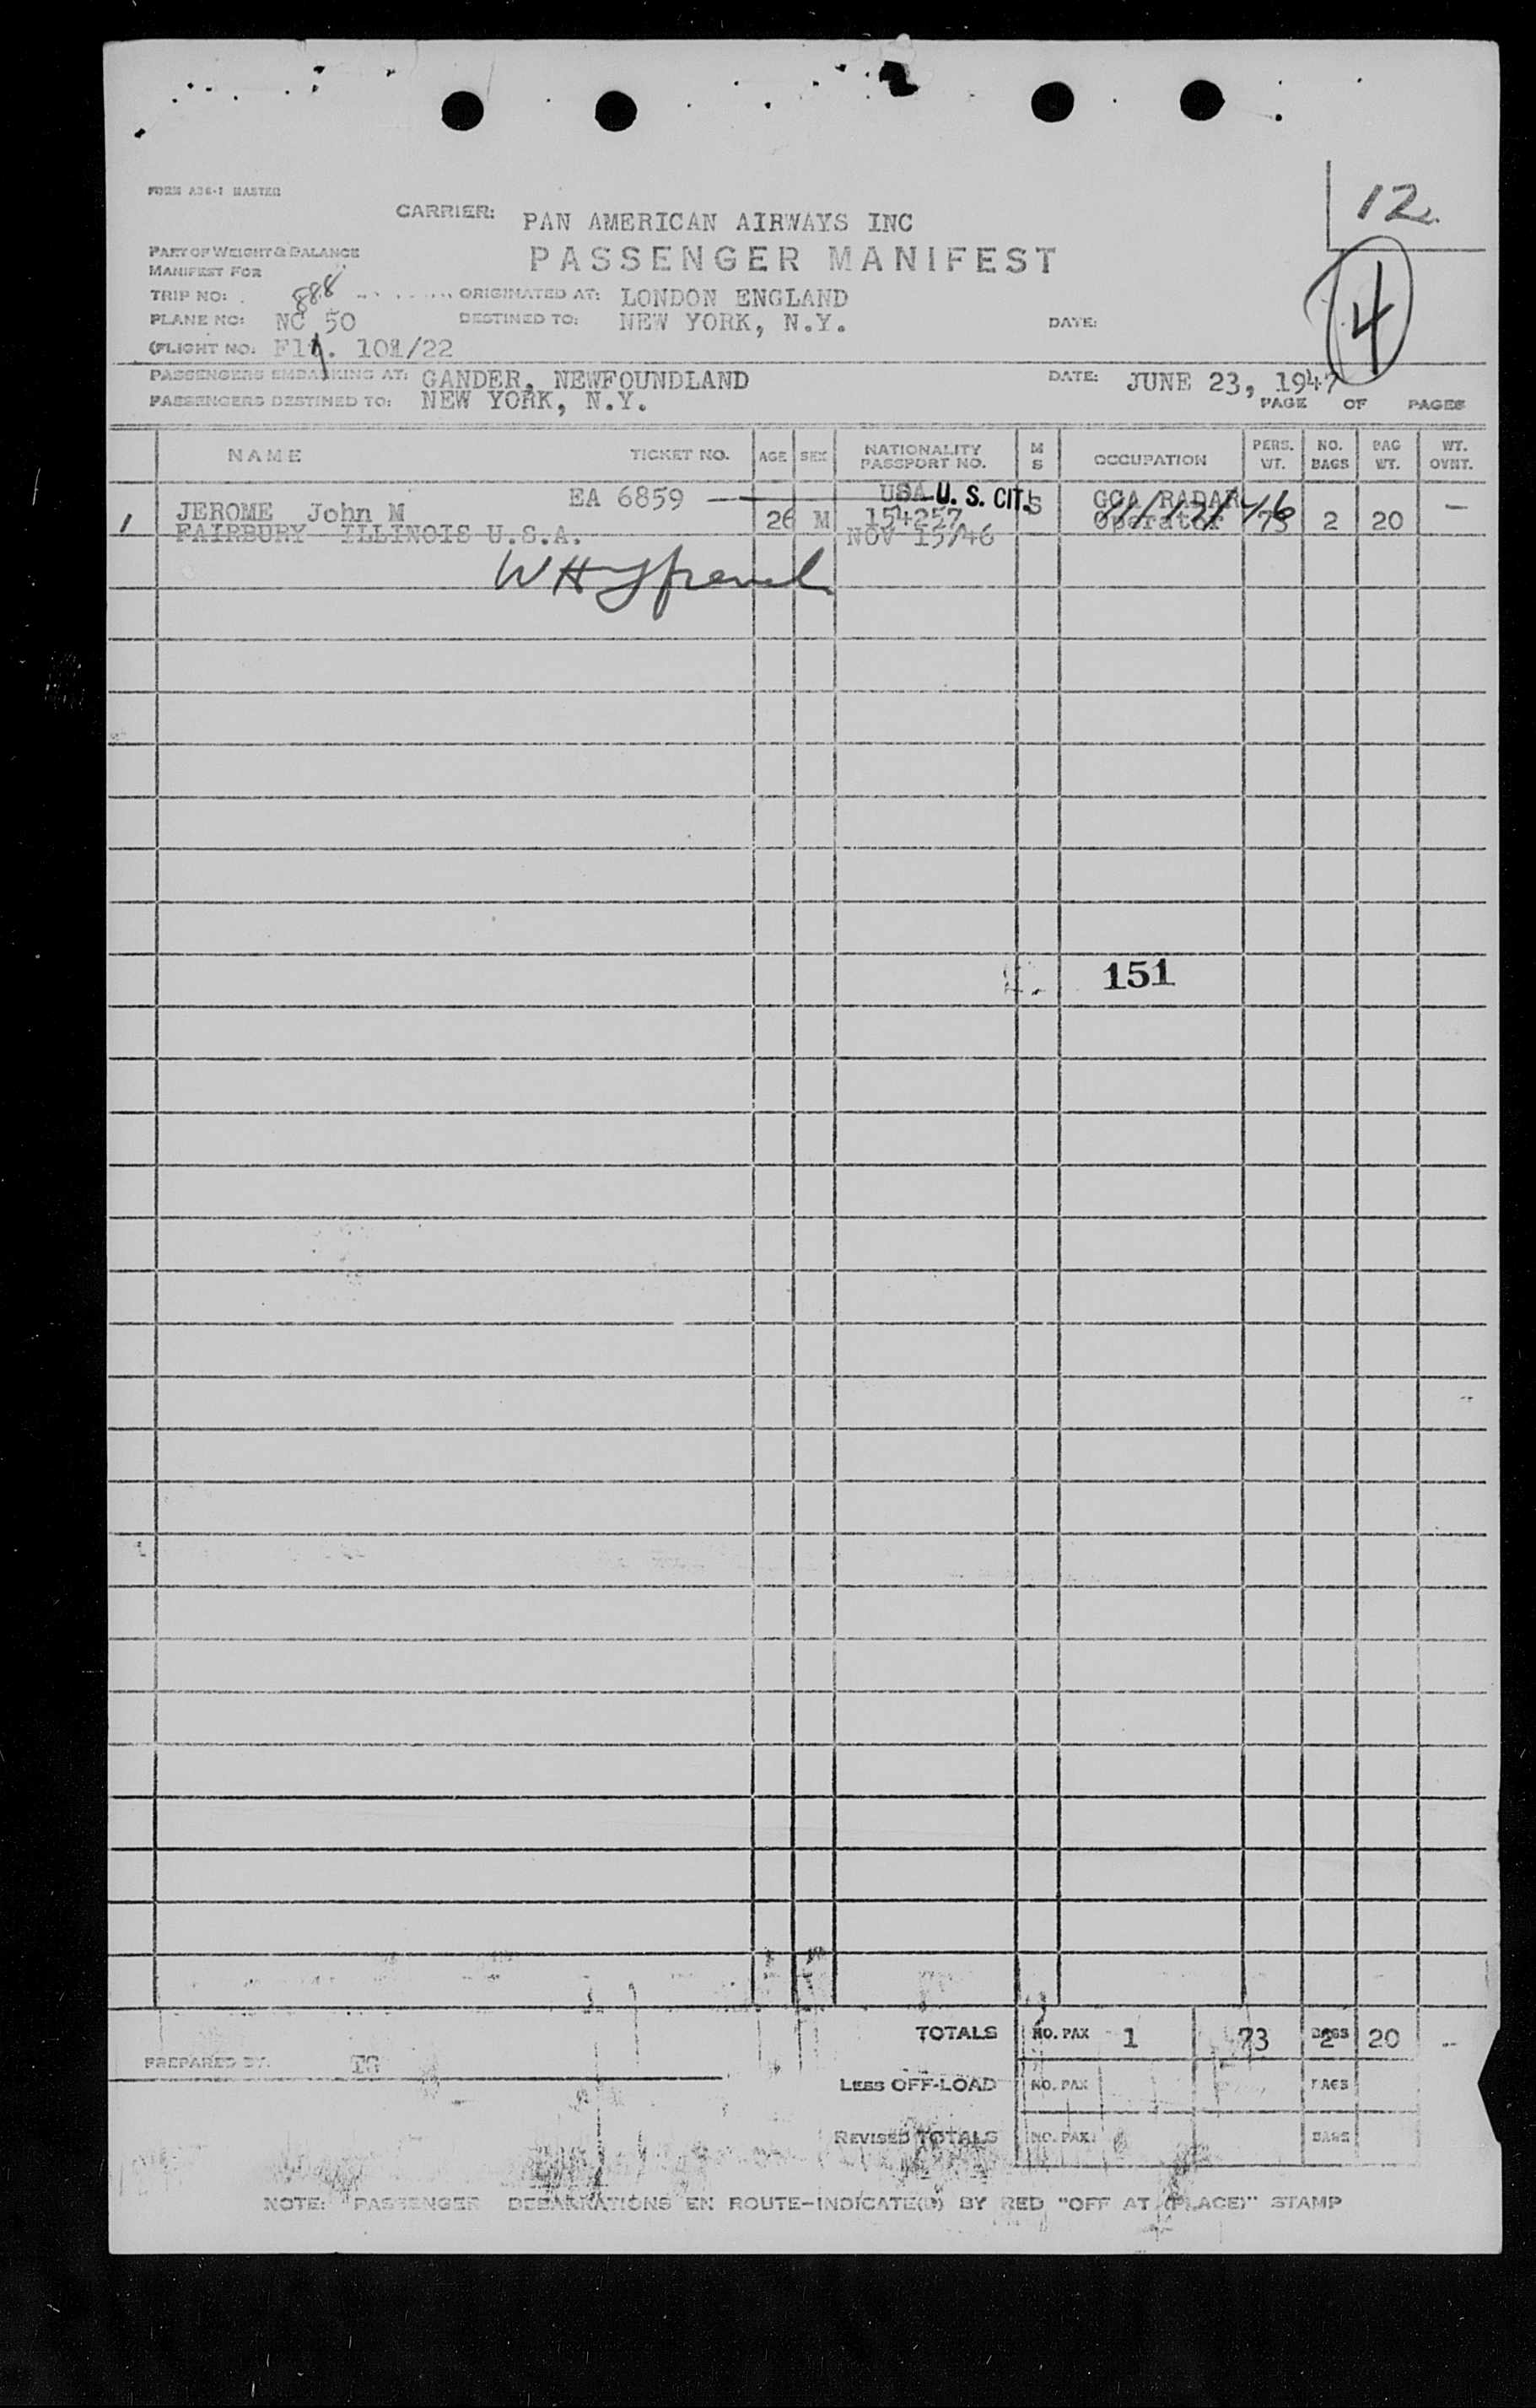 12
4
FORM A36-1 MASTER
CARRIER: PAN AMERICAN AIRWAYS INC
PART OF WEIGHT & BALANCE
MANIFEST FOR
PASSENGER MANIFEST
TRIP NO: 888 ORIGINATED AT: LONDON ENGLAND
PLANE NO: NC 50 DESTINED TO: NEW YORK, N.Y. DATE:
(FLIGHT NO: Flt. 101/22
PASSENGERS EMBARKING AT: GANDER, NEWFOUNDLAND DATE: JUNE 23, 1947
PASSENGERS DESTINED TO: NEW YORK, N.Y. PAGE OF PAGES
NAME TICKET NO. AGE SEX NATIONALITY PASSPORT NO. M S OCCUPATION PERS. WT. NO. BAGS BAG WT. WT. OVNT.
EA 6859 USA U. S. CIT. S GCA RADAR
1 JEROME John M 26 M 154257 Operator 11/12/46 73 2 20 -
FAIRBURY ILLINOIS U.S.A. NOV 15/46
151
TOTALS NO. PAX 1 73 BAGS 2 20 --
PREPARED BY:
LESS OFF-LOAD NO. PAX BAGS
REVISED TOTALS NO. PAX: BAGS
NOTE: PASSENGER DEBARKATIONS EN ROUTE-INDICATE(D) BY RED "OFF AT (PLACE)" STAMP